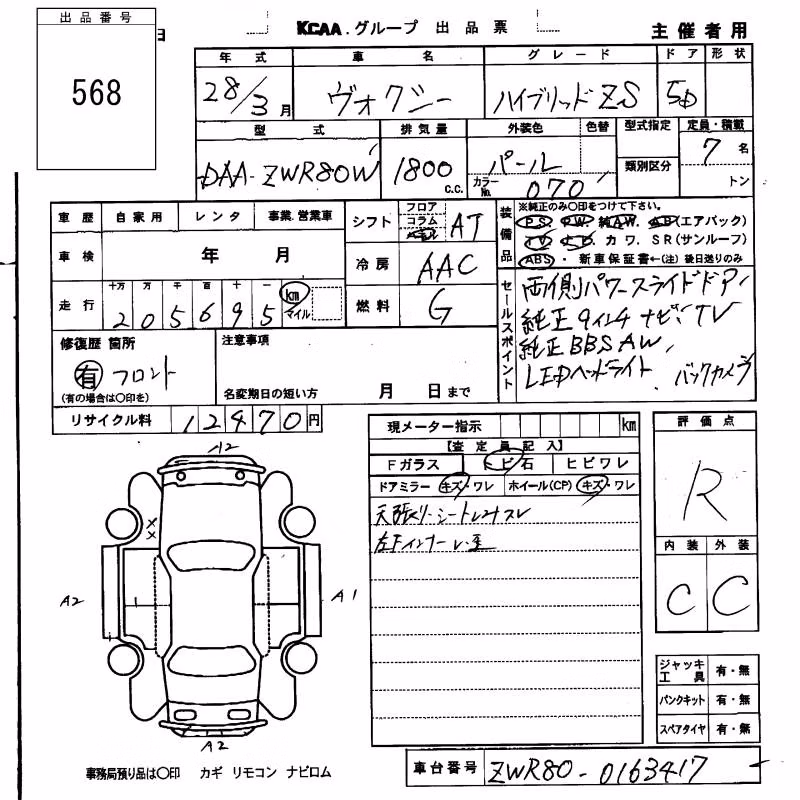 出品番号
568
日
KCAA.グループ 出品票
主催者用
年式 車名 グレード ドア 形状
28/3月 ヴォクシー ハイブリッドZS 5D
型式 排気量 外装色 色替 型式指定 定員・積載
DAA-ZWR80W 1800 c.c. パール 7名
カラーNo. 070 類別区分 トン
車歴 自家用 レンタ 事業.営業車
シフト フロア コラム AT
装備品 ※純正のみ〇印をつけて下さい。
PS. PW. 純AW. AB(エアバック)
TV カワ. SR(サンルーフ)
ABS・ 新車保証書←(注)後日送りのみ
車検 年 月
冷房 AAC
走行 十万 万 千 百 十 一
205695 km マイル
燃料 G
セールスポイント
両側パワースライドドア,
純正9インチナビ,TV
純正BBSAW,
LEDヘッドライト バックカメラ
修復歴 箇所
有 フロント
(有の場合は〇印を)
注意事項
名変期日の短い方 月 日まで
リサイクル料 12470円
現メーター指示 km
【査定員記入】
Fガラス トビ石 ヒビワレ
ドアミラー キズ・ワレ ホイール(CP) キズ・ワレ
天張り・シート
左Fインナー
評価点
R
内装 外装
C C
A2
A2
A1
A2
ジャッキ工具 有・無
パンクキット 有・無
スペアタイヤ 有・無
事務局預り品は〇印 カギ リモコン ナビロム
車台番号 ZWR80-0163417